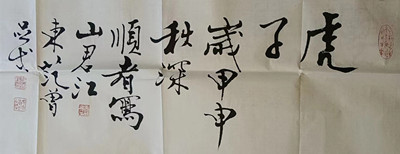 虎
子
歲甲申
秋深
順者寫
山君江
東范曾